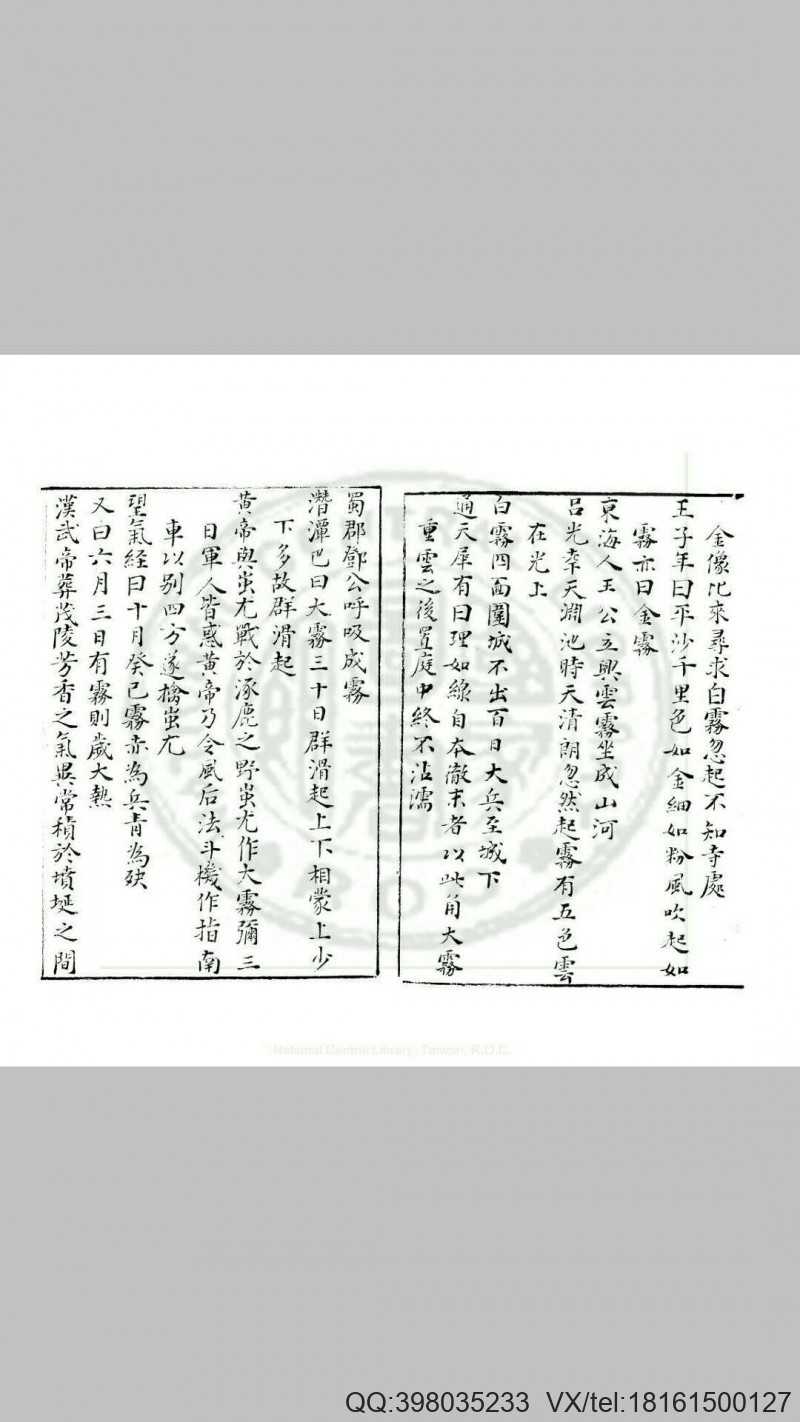 金像比來尋求白霧忽起不知寺處
王子年曰平沙千里色如金細如粉風吹起如
霧亦曰金霧
東海人王公立興雲霧坐成山河
呂光幸天淵池時天清朗忽然起霧有五色雲
在光上
白霧四面圍城不出百日大兵至城下
通天犀有曰理如線自本徹末者以此角大霧
重雲之後置庭中終不沾濡
蜀郡鄧公呼吸成霧
潛潭巴曰大霧三十日群滑起上下相蒙上少
下多故群滑起
黃帝與蚩尤戰於涿鹿之野蚩尤作大霧彌三
日軍人皆惑黃帝乃令風后法斗機作指南
車以別四方遂擒蚩尤
望氣経曰十月癸巳霧赤為兵青為殃
又曰六月三日有霧則歲大熱
漢武帝葬茂陵芳香之氣異常積於墳埏之間
National Central Library, Taiwan, R.O.C.
QQ:398035233 VX/tel:18161500127